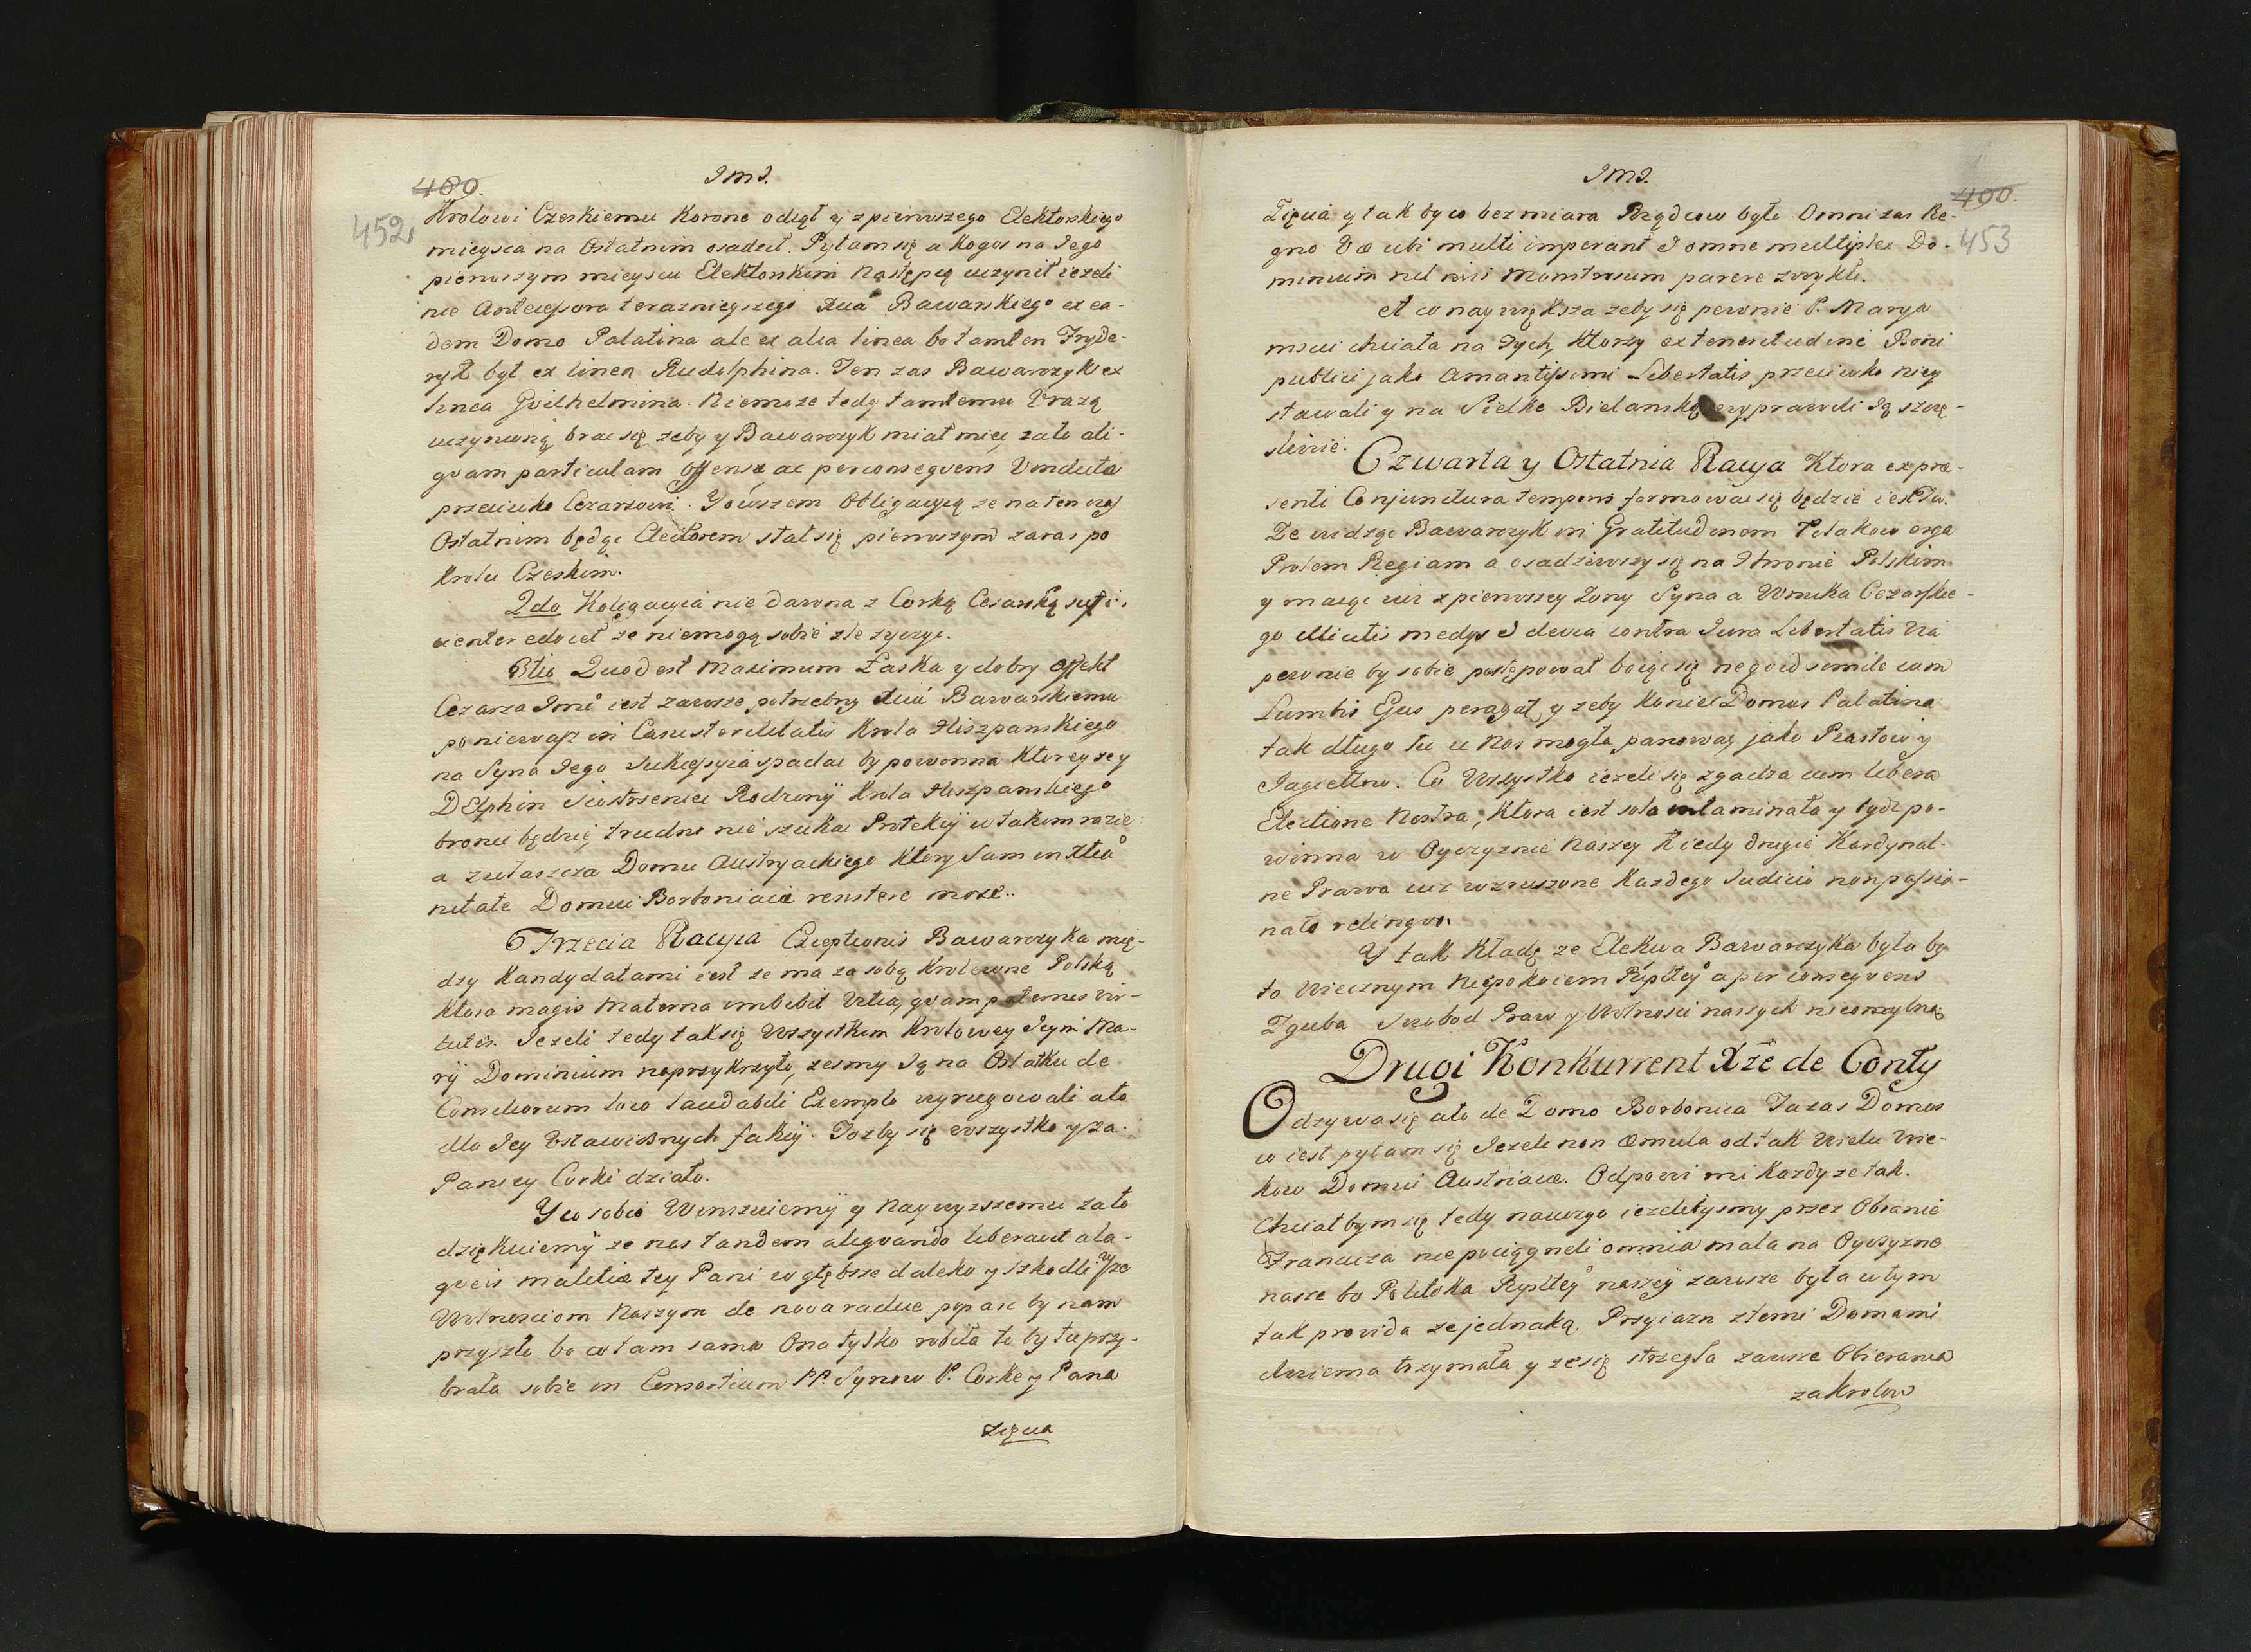 489.
452.
Jmd.
Krolowi Czeskiemu Korone odiął y z pierwszego Elektorskiego
mieysca na Ostatnim osadził. Pytam się a Kogos na Jego
pierwszym mieyscu Elektorskim Następcą uczynił iezeli
nie Antecessora terazniejszego Xcia Bawarskiego ex ea-
dem Domo Palatina ale ex alia linea bo tamten Fryde-
ryk był ex linea Rudolphina. Ten zas Bawarczyk ex
linea Gvilhelmina. Niemoze tedy tamtemu Vrazą
uczynioną brac się zeby y Bawarczyk miał miec zato ali-
qvam particulam Offensæ ac per conseqvens Vindicta
przeciwko Cezarzowi. Y owszem Obligacyą ze na ten czas
Ostatnim będąc Elektorem stał się pierwszym zaras po
Krolu Czeskim.
2do Koligacyia nie dawna z Corką Cesarską suffi-
cienter edocet ze niemogą sobie zle zyczyc.
3tio Quod est Maximum Łaska y dobry affekt
Cezarza Jmci iest zawsze potrzebny Xciu Bawarskiemu
poniewasz in Casu sterilitatis Krola Hiszpanskiego
na Syna Jego Sukcessyia spadac by powinna Ktorey zey
Delphin Siostrzeniec Rodzony Krola Hiszpanskiego
bronic będzie, trudno nie szukac Protekcij w takim razie
a zwłaszcza Domu Austryackiego Ktory Sam in Xtia-
nitate Domui Borboniacæ resistere moze..
Trzecia Racyia Exceptionis Bawarczyka mię-
dzy Kandydatami iest ze ma za sobą Krolewne Polską
Ktora magis Materna imbibit Vitia, qvam paternas vir-
tutes. Jezeli tedy tak się Wszystkim Krolowey Jeymci Ma-
rij Dominium naprzykrzyło, zesmy Ią na Ostatku de
Consiliorum loco laudabili Exemplo wyrugowali a to
dla Jey Vstawicznych fakcij. Tozby się wszystko y za
Paniey Corki działo.
Y co sobie Winszuiemy y Naywyzszemu zato
dziękuiemy ze nas tandem aliqvando liberavit a la-
qveis malitiæ tey Pani w głębsze daleko y szkodliwsze
Wolnosciom Naszym de nova radice popasc by nam
przyszło bo co tam sama Ona tylko robiła to by tu przy-
brała sobie in Consortium PP. Synow P. Corke y Pana
Zięcia
490.
453
Jmd.
Zięcia y tak by co bez miara Rządcow było Omni zas Re-
gno Væ ubi multi imperant J omne multiplex Do-
minium nil nisi Monstrosum parere zwykło.
A co naywiększa zeby się pewnie P. Marya
mscic chciała na Tych, Ktorzy ex teneritudine Boni
publici jako Amantissimi Libertatis przeciwko niey
stawali y na Sielke Bielanską wyprawili Ią szczę-
sliwie.
Czwarta y Ostatnia Racya Ktora ex præ-
senti Conjunctura temporis formowac się będzie iest Ta.
Ze widząc Bawarczyk in Gratitudinem Polakow erga
Prolem Regiam a osadziwszy się na Thronie Polskim
y maiąc iuz z pierwszey Zony Syna a Wnuka Cezarskie-
go Mictis medys J devia contra Jura Libertatis Via
pewnie by sobie postępował boiąc się ne qvid simile cum
Lumbis Ejus peragat, y zeby Koniec Domus Palatina
tak długo tu u Nas mogła panowac, jako Piastow y
Jagiellow. Co Wszystko iezeli się zgadza cum libera
Electione Nostra, Ktora iest sola intaminata y bydz po-
winna w Oyczyznie Naszey Kiedy drugie Kardynal-
ne Prawa iuz wzruszone Kazdego Iudicio non passio-
nato relinqvo.
Y tak Kładę ze Elekcya Bawarczyka byla by
to Wiecznym Niepokoiem Rzpltey a per conseqvens
Zguba Swobod Praw y Wolnosci naszych nieomylną
Drugi Konkurrent Xże de Conty
Odzywa się ato de Domo Borbonica Ta zas Domus
co iest pytam się Jezeli non Æmula od tak Wielu Wie-
kow Domui Austriacæ. Odpowi mi Kazdy ze tak.
Chciałbym się tedy nauczyc iezelibysmy przez Obranie
Francuza nie pociągneli omnia mala na Oyczyzne
nasze bo Polityka Rzpltey naszey zawsze była w tym
tak provida ze jednaką Przyiazn z temi Domami
dwiema trzymała y ze się strzegła zawsze Obierania
za Krolow